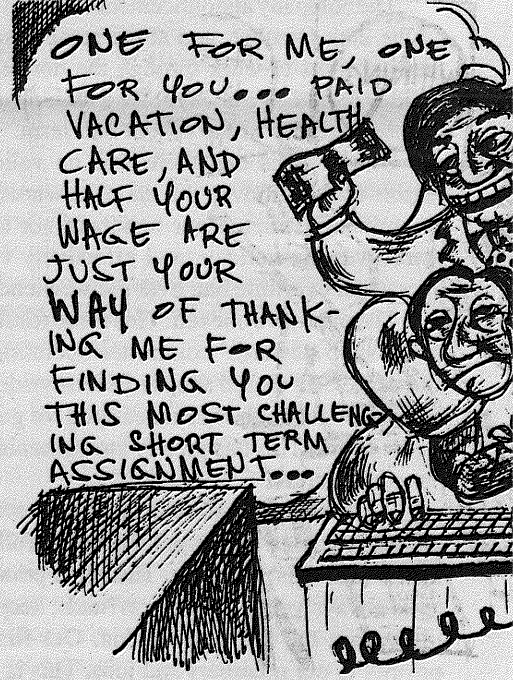 ONE FOR ME, ONE
FOR YOU... PAID
VACATION, HEALTH
CARE, AND
HALF YOUR
WAGE ARE
JUST YOUR
WAY OF THANK-
ING ME FOR
FINDING YOU
THIS MOST CHALLENG-
ING SHORT TERM
ASSIGNMENT...